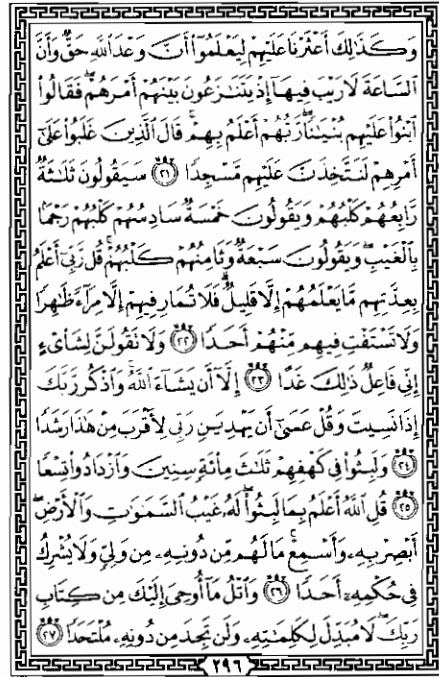 وَكَذَٰلِكَ أَعْثَرْنَا عَلَيْهِمْ لِيَعْلَمُوٓا۟ أَنَّ وَعْدَ ٱللَّهِ حَقٌّ وَأَنَّ
ٱلسَّاعَةَ لَا رَيْبَ فِيهَآ إِذْ يَتَنَٰزَعُونَ بَيْنَهُمْ أَمْرَهُمْ ۖ فَقَالُوا۟
ٱبْنُوا۟ عَلَيْهِم بُنْيَٰنًا ۖ رَّبُّهُمْ أَعْلَمُ بِهِمْ ۚ قَالَ ٱلَّذِينَ غَلَبُوا۟ عَلَىٰٓ
أَمْرِهِمْ لَنَتَّخِذَنَّ عَلَيْهِم مَّسْجِدًا ٢١ سَيَقُولُونَ ثَلَٰثَةٌ
رَّابِعُهُمْ كَلْبُهُمْ وَيَقُولُونَ خَمْسَةٌ سَادِسُهُمْ كَلْبُهُمْ رَجْمًۢا
بِٱلْغَيْبِ ۖ وَيَقُولُونَ سَبْعَةٌ وَثَامِنُهُمْ كَلْبُهُمْ ۚ قُل رَّبِّىٓ أَعْلَمُ
بِعِدَّتِهِم مَّا يَعْلَمُهُمْ إِلَّا قَلِيلٌ ۗ فَلَا تُمَارِ فِيهِمْ إِلَّا مِرَآءً ظَٰهِرًا
وَلَا تَسْتَفْتِ فِيهِم مِّنْهُمْ أَحَدًا ٢٢ وَلَا تَقُولَنَّ لِشَا۟ىْءٍ
إِنِّى فَاعِلٌ ذَٰلِكَ غَدًا ٢٣ إِلَّآ أَن يَشَآءَ ٱللَّهُ ۚ وَٱذْكُر رَّبَّكَ
إِذَا نَسِيتَ وَقُلْ عَسَىٰٓ أَن يَهْدِيَنِ رَبِّى لِأَقْرَبَ مِنْ هَٰذَا رَشَدًا
٢٤ وَلَبِثُوا۟ فِى كَهْفِهِمْ ثَلَٰثَ مِا۟ئَةٍ سِنِينَ وَٱزْدَادُوا۟ تِسْعًا
٢٥ قُلِ ٱللَّهُ أَعْلَمُ بِمَا لَبِثُوا۟ ۖ لَهُۥ غَيْبُ ٱلسَّمَٰوَٰتِ وَٱلْأَرْضِ ۖ
أَبْصِرْ بِهِۦ وَأَسْمِعْ ۚ مَا لَهُم مِّن دُونِهِۦ مِن وَلِىٍّ وَلَا يُشْرِكُ
فِى حُكْمِهِۦٓ أَحَدًا ٢٦ وَٱتْلُ مَآ أُوحِىَ إِلَيْكَ مِن كِتَابِ
رَبِّكَ ۖ لَا مُبَدِّلَ لِكَلِمَٰتِهِۦ وَلَن تَجِدَ مِن دُونِهِۦ مُلْتَحَدًا ٢٧
٢٩٦